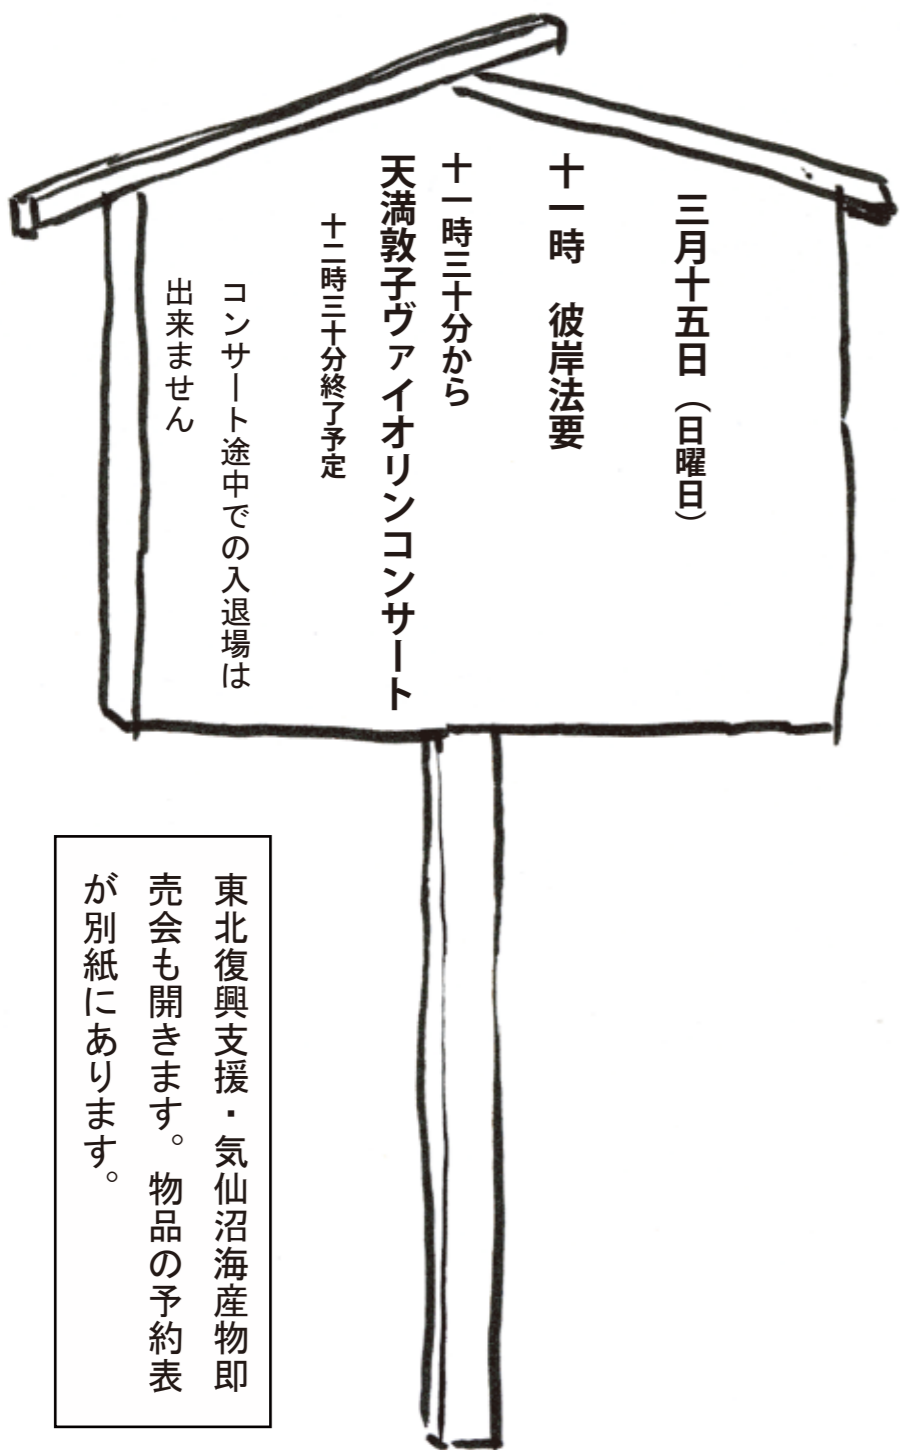 三月十五日（日曜日）
十一時　彼岸法要
十一時三十分から
天満敦子ヴァイオリンコンサート
十二時三十分終了予定
コンサート途中での入退場は
出来ません
東北復興支援・気仙沼海産物即
売会も開きます。物品の予約表
が別紙にあります。